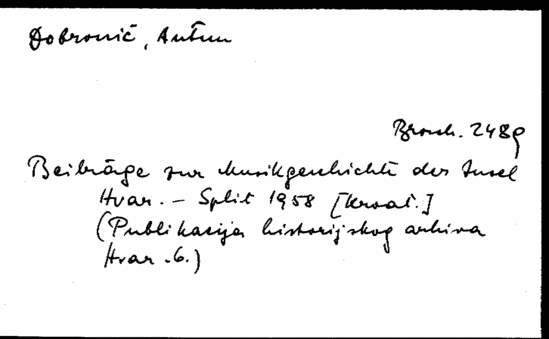 Dobronić, Antun
Brosch. 2489
Beiträge zur Musikgeschichte der Insel
Hvar. – Split 1958 [kroat.]
(Publikacija historijskog arhiva
Hvar. 6.)